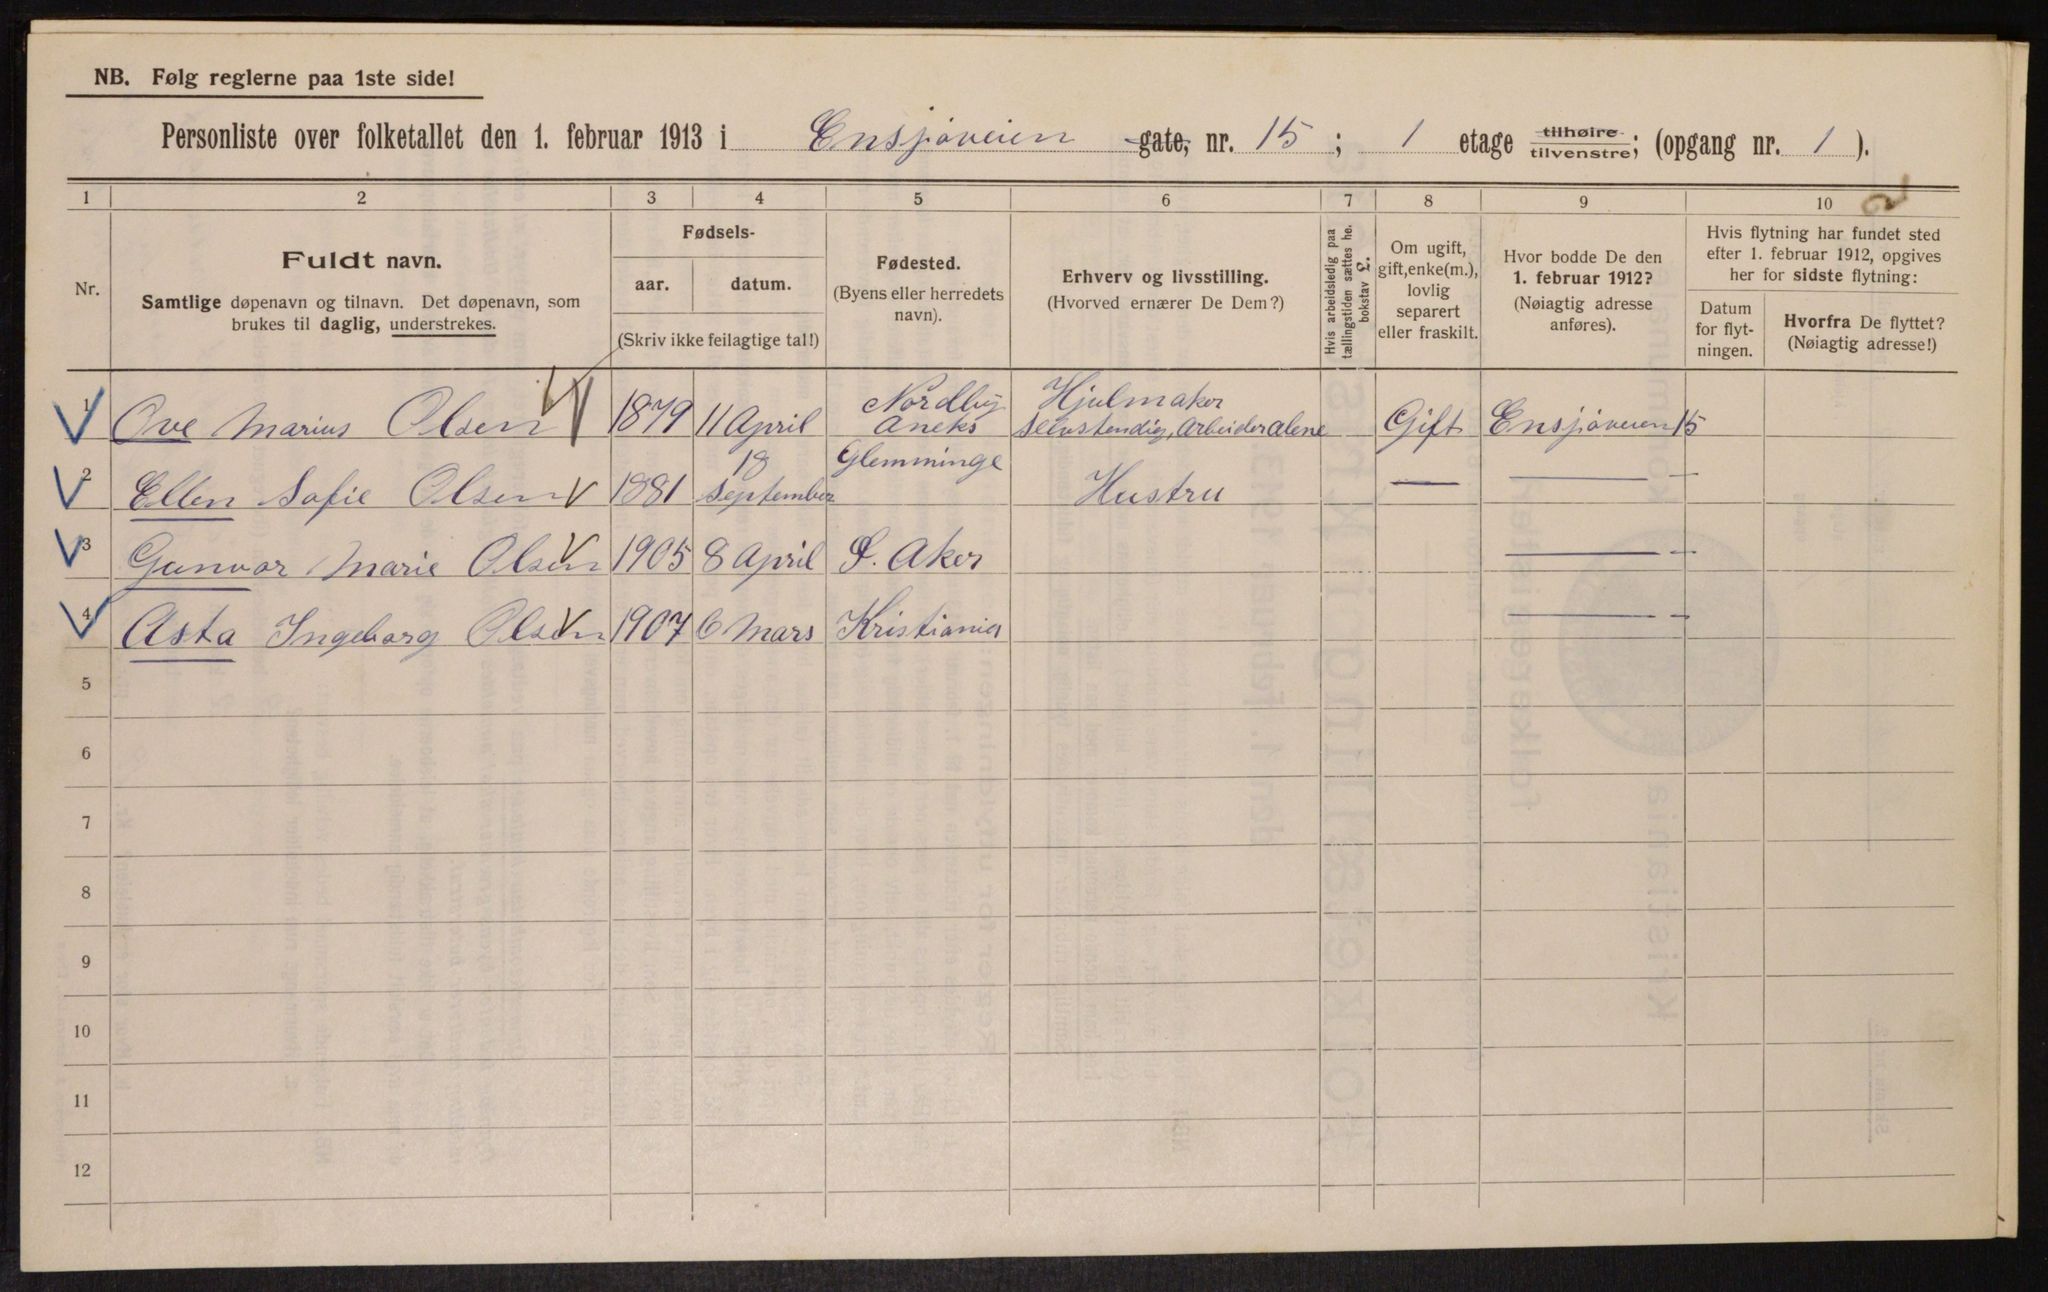 NB. Følg reglerne paa 1ste side!
Personliste over folketallet den 1. februar 1913 i Ensjøveien gate, nr. 15 ; 1 etage tilhøire tilvenstre; (opgang nr. 1 ).
1 2 3 4 5 6 7 8 9 10
Nr.
Fuldt navn.
Samtlige døpenavn og tilnavn. Det døpenavn, som
brukes til daglig, understrekes.
Fødsels-
aar. datum.
(Skriv ikke feilagtige tal!)
Fødested.
(Byens eller herredets
navn).
Erhverv og livsstilling.
(Hvorved ernærer De Dem?)
Hvis arbeidsledig paa
tællingstiden sættes he.
bokstav L.
Om ugift,
gift, enke(m.),
lovlig
separert
eller fraskilt.
Hvor bodde De den
1. februar 1912?
(Nøiagtig adresse
anføres).
Hvis flytning har fundet sted
efter 1. februar 1912, opgives
her for sidste flytning:
Datum
for flyt-
ningen.
Hvorfra De flyttet?
(Nøiagtig adresse!)
1 Ove Marius Olsen 1879 11 April Nordby Aneks Hjulmaker Selvstendig, Arbeider alene Gift Ensjøveien 15
2 Ellen Sofie Olsen 1881 18 September Glemminge Hustru — —
3 Gunvor Marie Olsen 1905 8 April Ø. Aker —
4 Asta Ingeborg Olsen 1907 6 Mars Kristiania —
5
6
7
8
9
10
11
12